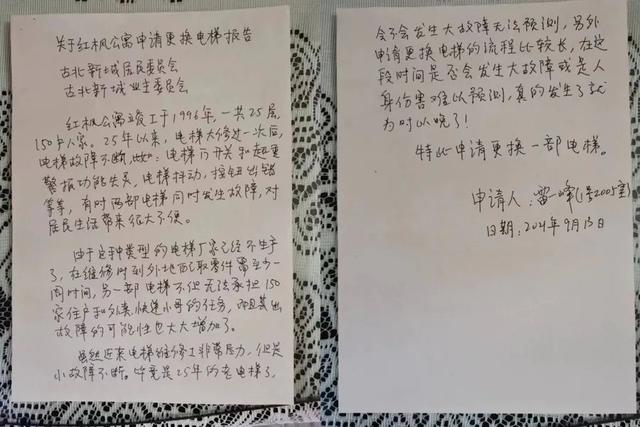 关于红枫公寓申请更换电梯报告
古北新城居民委员会
古北新城业主委员会
红枫公寓竣工于1996年,一共25层,
150户人家。25年以来,电梯大修过一次后,
电梯故障不断,比如:电梯门开关和超重
警报功能失灵,电梯抖动,按钮出错
等等,有时两部电梯同时发生故障,对
居民生活带来很大不便。
由于这种类型的电梯厂家已经不生产
了,在维修时到外地配取零件需至少一
周时间,另一部电梯不但无法承担150
家住户和外卖,快递小哥的任务,而且其出
故障的可能性也大大增加了。
虽然近来电梯维修工非常尽力,但是
小故障不断。毕竟是25年的老电梯了,
会不会发生大故障无法预测,另外
申请更换电梯的流程比较长,在这
段时间是否会发生大故障或是人
身伤害难以预测,真的发生了就
为时以晚了!
特此申请更换一部电梯。
申请人:雷一峰(1号2005室)
日期:2021年9月13日